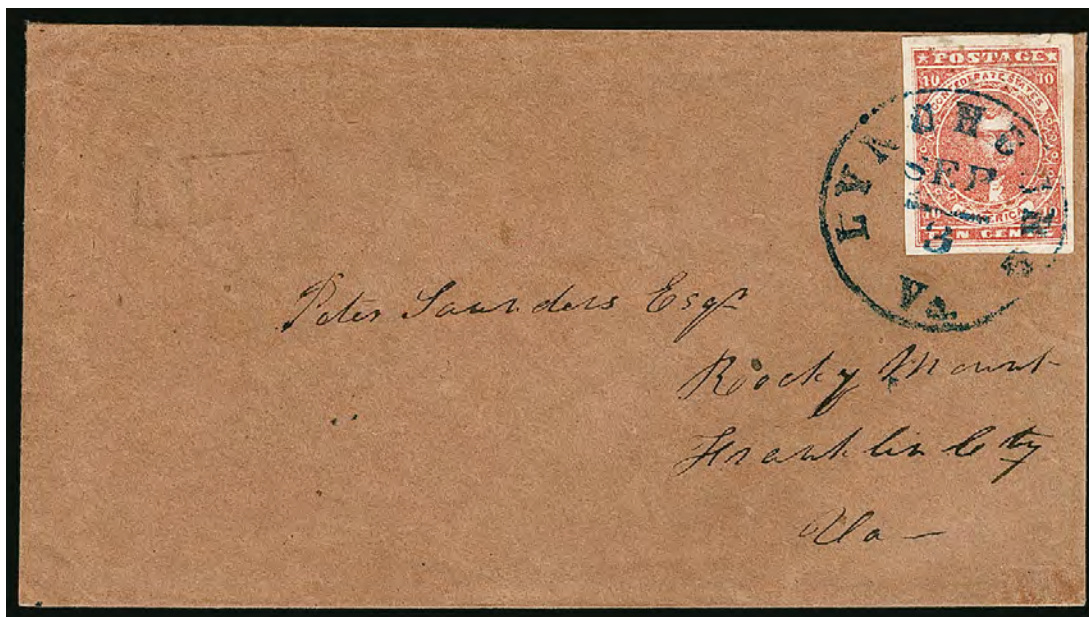 ★POSTAGE★
10 10
CONFEDERATE STATES
AMERICA
10
TEN CENTS
LYNCHBURG
SEP
Va.
Peter Saunders Esqr
Rocky Mount
Franklin Cty
Va —